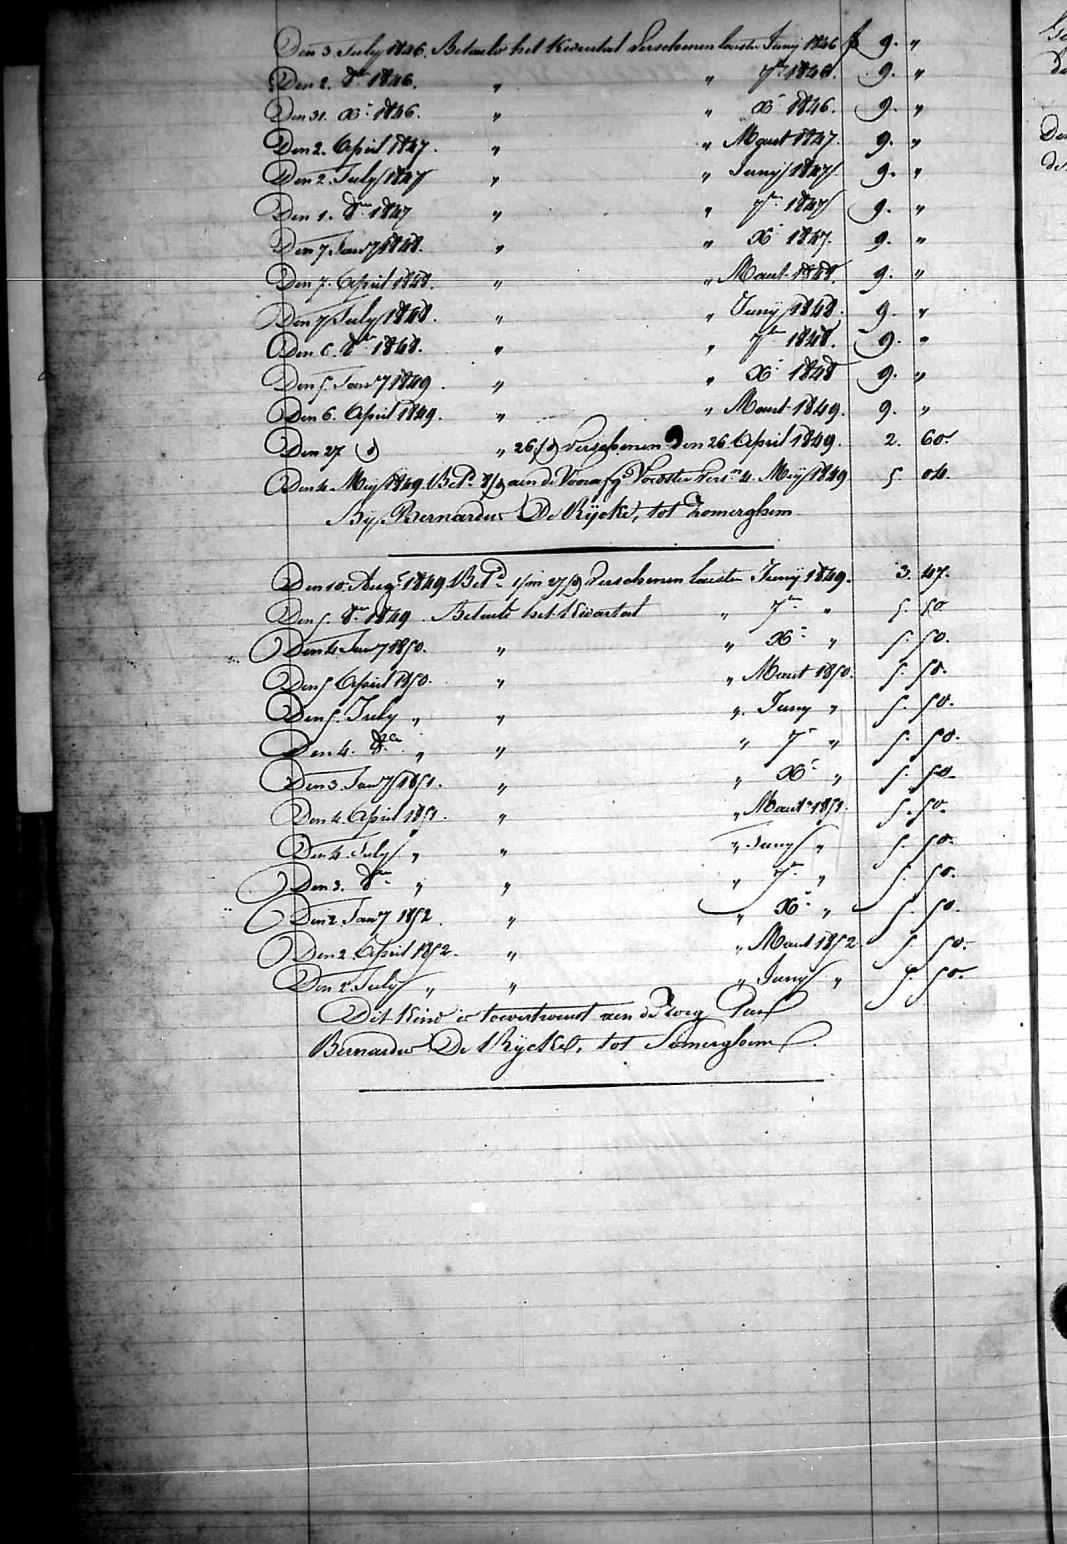 Den 3. July 1846. Betaelt het Kwartal Verschenen laeste Junij 1846 f 9. "
Den 2. 8er 1846. " " 7er 1846. 9. "
Den 31. Xr 1846. " " Xr 1846. 9. "
Den 2. April 1847. " " Maert 1847. 9. "
Den 2. July 1847 " " Junij 1847 9. "
Den 1. 8er 1847 " " 7er 1847 9. "
Den 7 Janry 1848. " " Xr 1847. 9. "
Den 7. April 1848. " " Maert 1848. 9. "
Den 7 July 1848. " " Junij 1848. 9. "
Den 6. 8er 1848. " " 7er 1848. 9. "
Den 5. Janry 1849. " " Xr 1848 9. "
Den 6. April 1849. " " Maert 1849. 9. "
Den 27 " 26/ Verschenen Den 26. April 1849. 2. 60.
Den 4. Meij 1849. Betd 8/ aen de Voorafg Voedster Versn 4. Meij 1849 5. 04.
Bij Bernardus De Rijcke, tot Zomerghem
Den 10. Augt 1849. Betd 1/m 27/ Verschenen laeste Junij 1849. 3. 47.
Den 5. 8er 1849. Betaelt het Kwartal " 7er " 5. 50
Den 4. Janry 1850. " " Xr " 5. 50.
Den 5 April 1850. " " Maert 1850. 5. 50.
Den 5. July " " " Juny " 5. 50.
Den 4. 8er " " " 7r " 5. 50.
Den 3. Janry 1851. " " Xr " 5. 50.
Den 4. April 1851. " " Maert 1851. 5. 50.
Den 4. July " " " Juny " 5. 50.
Den 3. 8er " " " 7er " 5. 50.
Den 2. Janry 1852. " " Xr " 5. 50.
Den 2. April 1852. " " Maert 1852. 5. 50.
Den 2. July " " " Juny " 5. 50.
Dit Kind is toevertrouwt aen de Zorg Van
Bernardus De Rijcke, tot Somerghem.